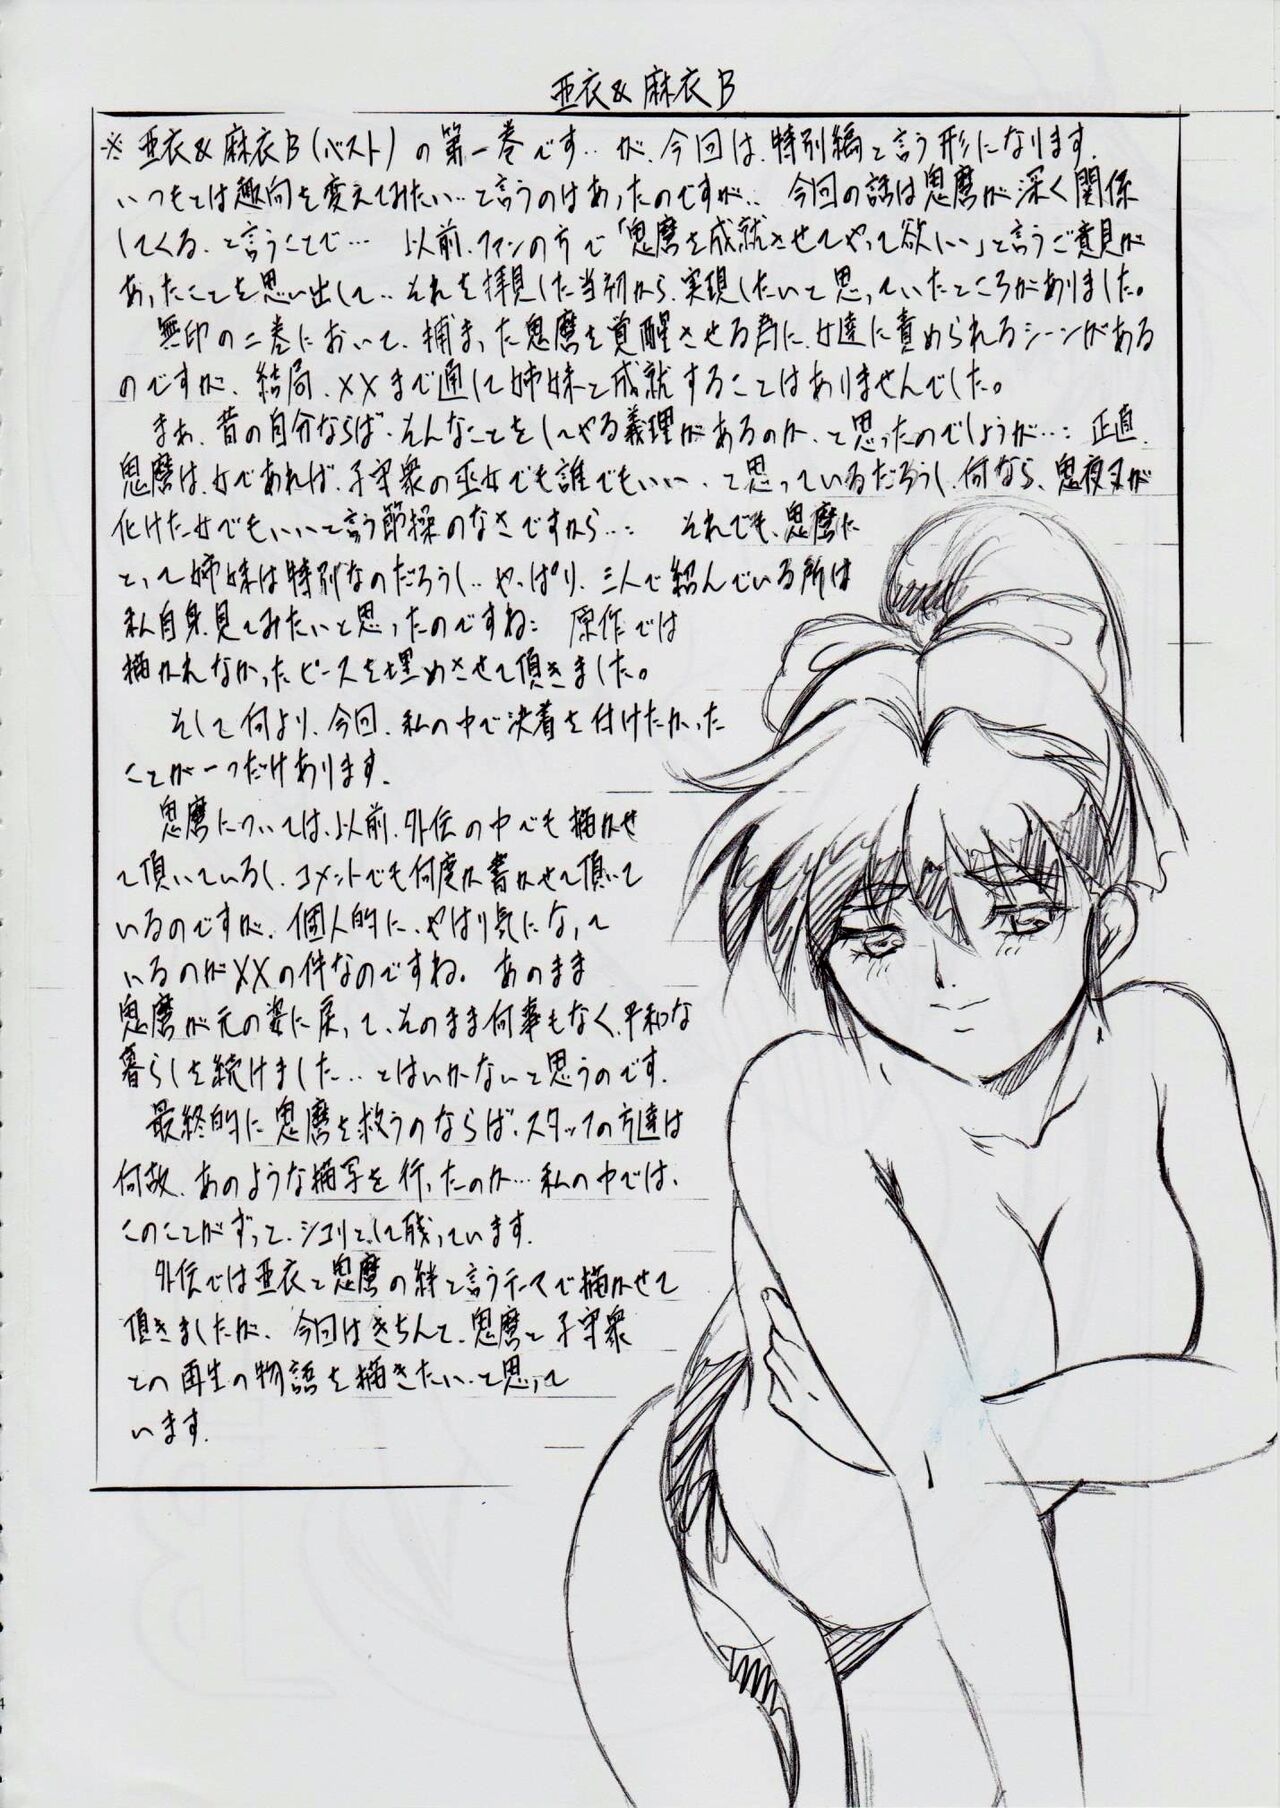 亜衣&麻衣B
※亜衣&麻衣B(ベスト)の第一巻です‥が、今回は、特別編と言う形になります。
いつもとは趣向を変えてみたい‥と言うのはあったのですが‥ 今回の話は鬼麿が深く関係
してくる、と言うことで… 以前、ファンの方で「鬼麿を成就させてやって欲しい」と言うご意見が
あったことを思い出して‥それを拝見した当初から、実現したいと思っていたところがありました。
無印の二巻において、捕まった鬼麿を覚醒させる為に、女達に責められるシーンがある
のですが、結局、XXまで通して姉妹と成就することはありませんでした。
まぁ、昔の自分ならば、そんなことをしてやる義理があるのか、と思ったのでしょうが…: 正直、
鬼麿は、女であれば、子守衆の巫女でも誰でもいい、と思っているだろうし、何なら、鬼夜叉が
化けた女でもいいと言う節操のなさですから…: それでも、鬼麿に
とって姉妹は特別なのだろうし‥やっぱり、三人で絡んでいる所は
私自身、見てみたいと思ったのですね: 原作では
描かれなかったピースを埋めさせて頂きました。
そして何より、今回、私の中で決着を付けたかった
ことが一つだけあります。
鬼麿については、以前、外伝の中でも描かせ
て頂いているし、コメントでも何度か書かせて頂いて
いるのですが、個人的に、やはり気になって
いるのがXXの件なのですね。あのまま
鬼麿が元の姿に戻って、そのまま何事もなく、平和な
暮らしを続けました‥とはいかないと思うのです。
最終的に鬼麿を救うのならば、スタッフの方達は
何故、あのような描写を行ったのか…私の中では、
このことがずっと、シコリとして残っています。
外伝では亜衣と鬼麿の絆と言うテーマで描かせて
頂きましたが、今回はきちんと、鬼麿と子守衆
との再生の物語を描きたい‥と思って
います。